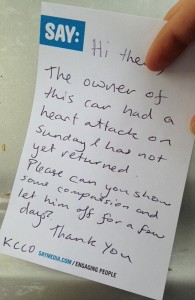 SAY:
Hi there,
The owner of
this car had a
heart attack on
Sunday & has not
yet returned.
Please can you show
some compassion and
let him off for a few
days?
Thank You
KCCO
SAYMEDIA.COM/ENGAGING PEOPLE